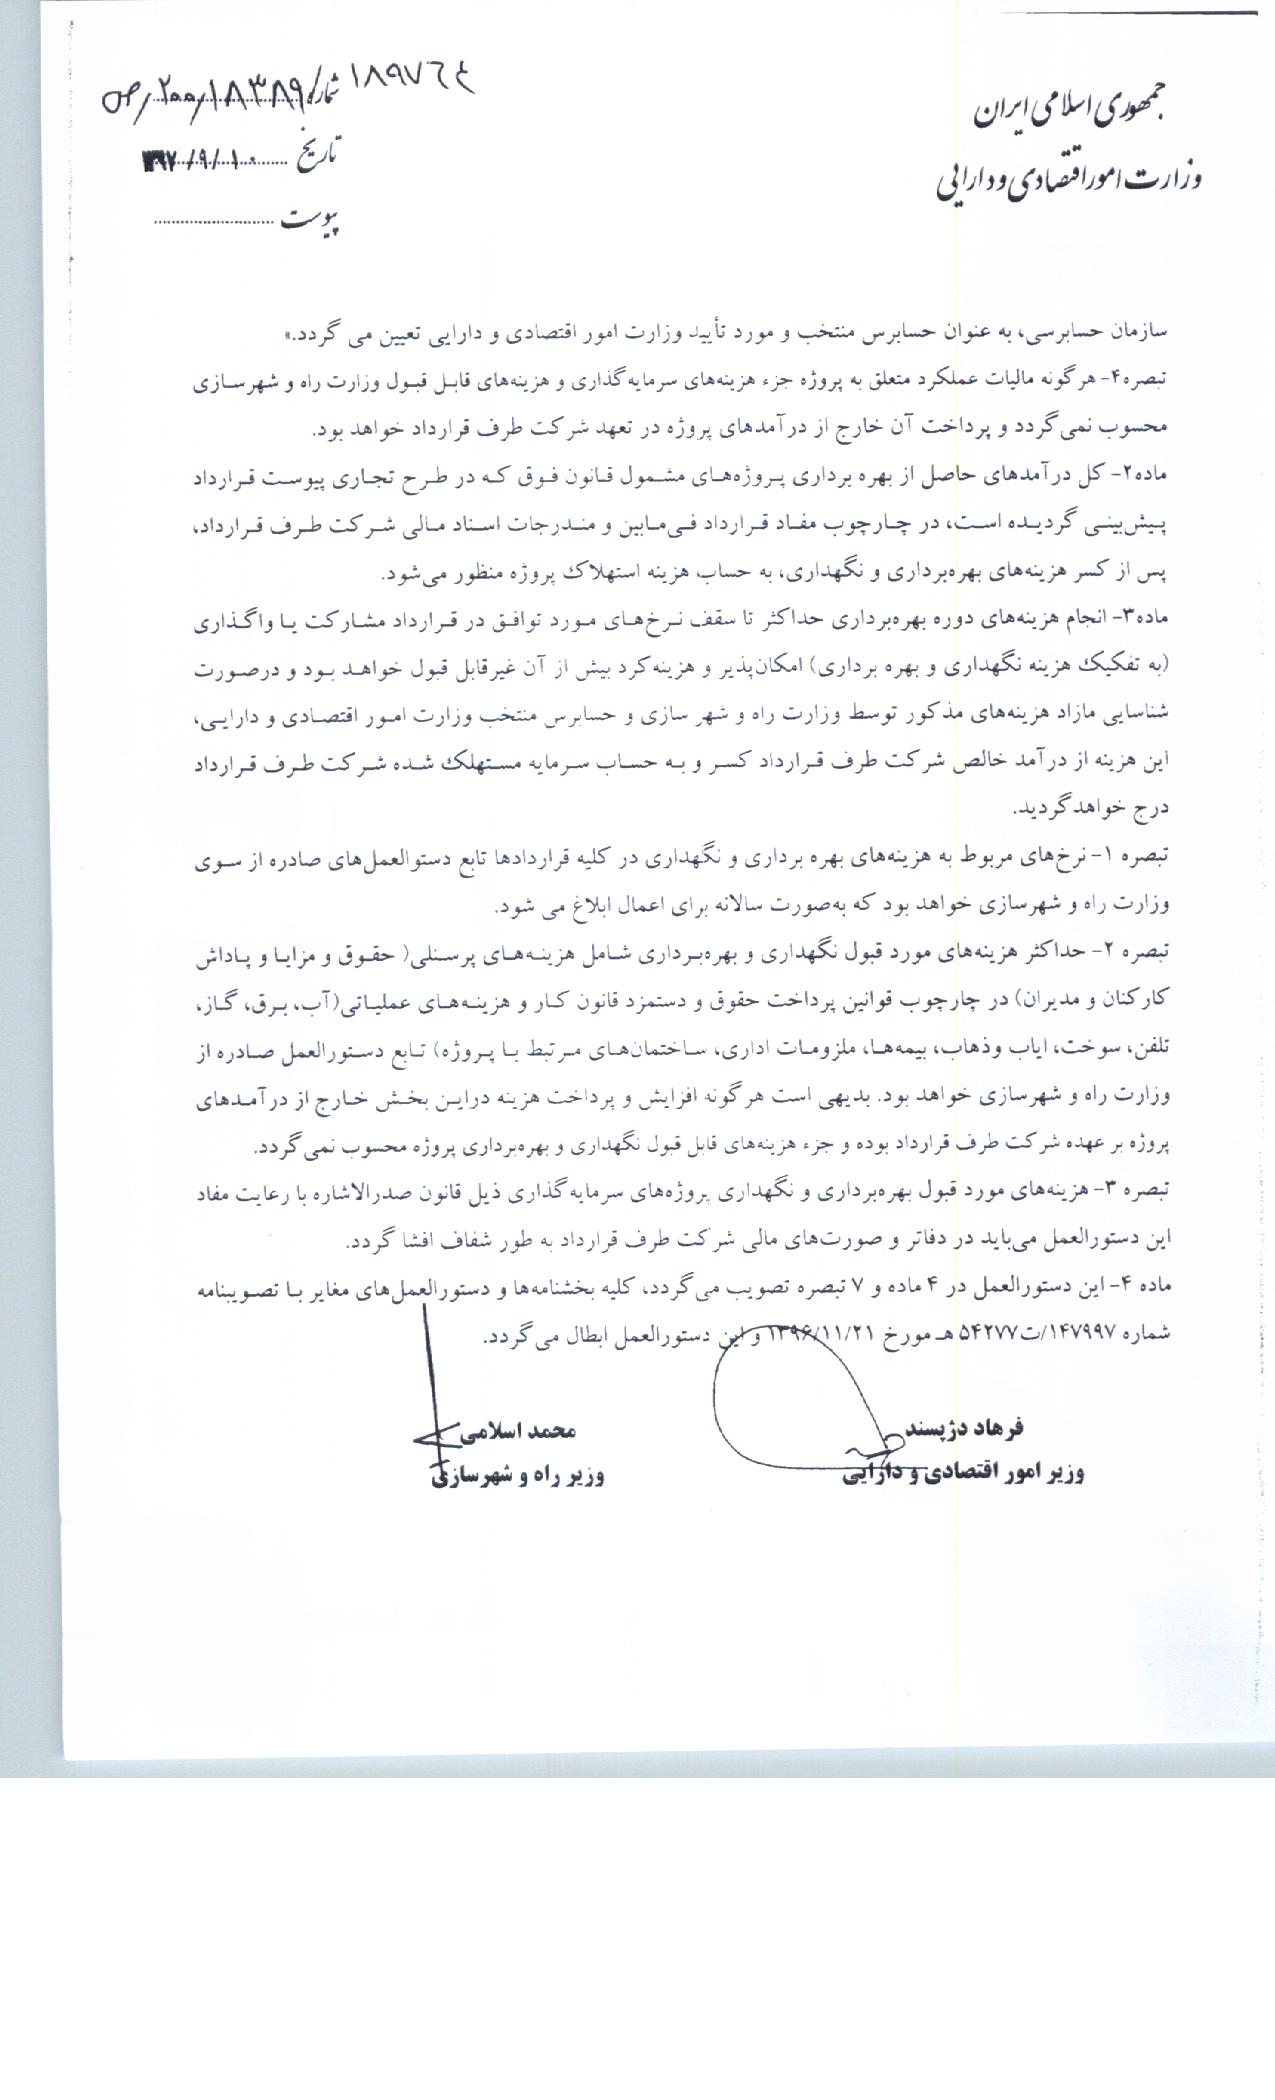 جمهوری اسلامی ایران
وزارت امور اقتصادی و دارایی
۱۸۹۷۶۴
شماره ۲۰۰/۱۸۳۸۹/ص
تاریخ ۱۳۹۷/۹/۱۰
پیوست
سازمان حسابرسی، به عنوان حسابرس منتخب و مورد تأیید وزارت امور اقتصادی و دارایی تعیین می گردد.»
تبصره۴- هرگونه مالیات عملکرد متعلق به پروژه جزء هزینه‌های سرمایه‌گذاری و هزینه‌های قابل قبول وزارت راه و شهرسازی
محسوب نمی‌گردد و پرداخت آن خارج از درآمدهای پروژه در تعهد شرکت طرف قرارداد خواهد بود.
ماده۲- کل درآمدهای حاصل از بهره برداری پروژه‌های مشمول قانون فوق که در طرح تجاری پیوست قرارداد
پیش‌بینی گردیده است، در چارچوب مفاد قرارداد فی‌مابین و مندرجات اسناد مالی شرکت طرف قرارداد،
پس از کسر هزینه‌های بهره‌برداری و نگهداری، به حساب هزینه استهلاک پروژه منظور می‌شود.
ماده۳- انجام هزینه‌های دوره بهره‌برداری حداکثر تا سقف نرخ‌های مورد توافق در قرارداد مشارکت یا واگذاری
(به تفکیک هزینه نگهداری و بهره برداری) امکان‌پذیر و هزینه‌کرد بیش از آن غیرقابل قبول خواهد بود و درصورت
شناسایی مازاد هزینه‌های مذکور توسط وزارت راه و شهر سازی و حسابرس منتخب وزارت امور اقتصادی و دارایی،
این هزینه از درآمد خالص شرکت طرف قرارداد کسر و به حساب سرمایه مستهلک شده شرکت طرف قرارداد
درج خواهدگردید.
تبصره ۱- نرخ‌های مربوط به هزینه‌های بهره برداری و نگهداری در کلیه قراردادها تابع دستوالعمل‌های صادره از سوی
وزارت راه و شهرسازی خواهد بود که به‌صورت سالانه برای اعمال ابلاغ می شود.
تبصره ۲- حداکثر هزینه‌های مورد قبول نگهداری و بهره‌برداری شامل هزینه‌های پرسنلی( حقوق و مزایا و پاداش
کارکنان و مدیران) در چارچوب قوانین پرداخت حقوق و دستمزد قانون کار و هزینه‌های عملیاتی(آب، برق، گاز،
تلفن، سوخت، ایاب وذهاب، بیمه‌ها، ملزومات اداری، ساختمان‌های مرتبط با پروژه) تابع دستورالعمل صادره از
وزارت راه و شهرسازی خواهد بود. بدیهی است هرگونه افزایش و پرداخت هزینه دراین بخش خارج از درآمدهای
پروژه بر عهده شرکت طرف قرارداد بوده و جزء هزینه‌های قابل قبول نگهداری و بهره‌برداری پروژه محسوب نمی‌گردد.
تبصره ۳- هزینه‌های مورد قبول بهره‌برداری و نگهداری پروژه‌های سرمایه‌گذاری ذیل قانون صدرالاشاره با رعایت مفاد
این دستورالعمل می‌باید در دفاتر و صورت‌های مالی شرکت طرف قرارداد به طور شفاف افشا گردد.
ماده ۴- این دستورالعمل در ۴ ماده و ۷ تبصره تصویب می‌گردد، کلیه بخشنامه‌ها و دستورالعمل‌های مغایر با تصویبنامه
شماره ۱۴۷۹۹۷/ت۵۴۲۷۷ هـ مورخ ۱۳۹۶/۱۱/۲۱ و این دستورالعمل ابطال می‌گردد.
فرهاد دژپسند
وزیر امور اقتصادی و دارایی
محمد اسلامی
وزیر راه و شهرسازی